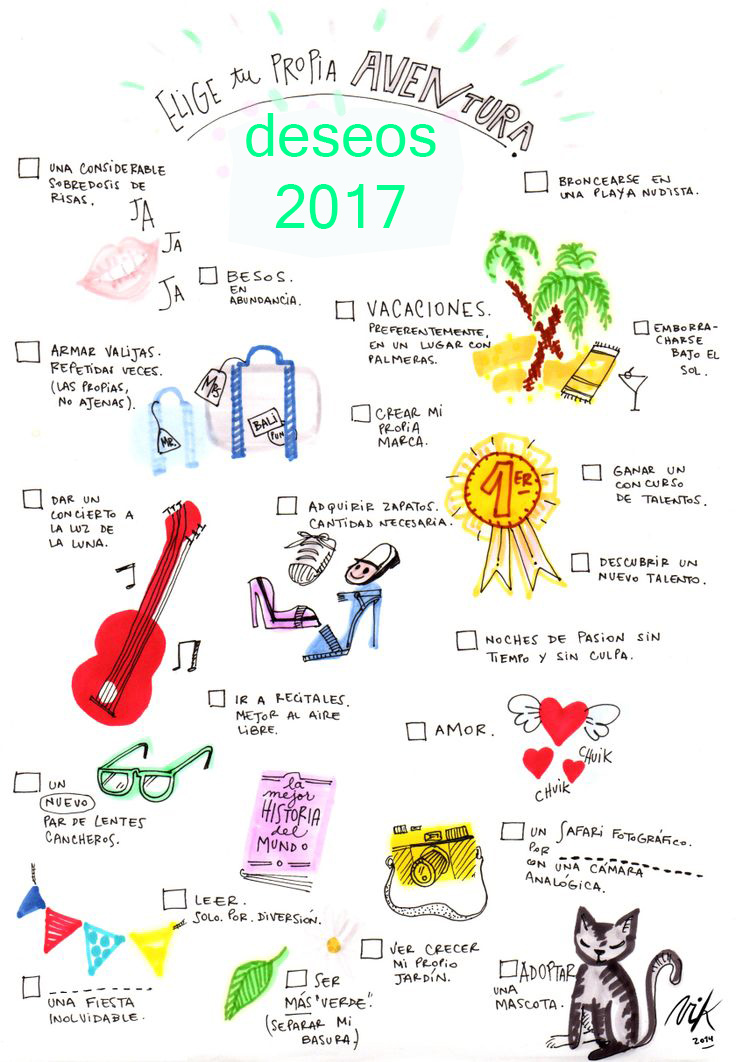 ELIGE tu PROPIA AVENTURA.
deseos
2017
UNA CONSIDERABLE
SOBREDOSIS DE
RISAS.
JA
JA
JA
BRONCEARSE EN
UNA PLAYA NUDISTA.
BESOS.
EN
ABUNDANCIA.
VACACIONES.
PREFERENTEMENTE,
EN UN LUGAR CON
PALMERAS.
EMBORRA-
CHARSE
BAJO EL
SOL.
ARMAR VALIJAS.
REPETIDAS VECES.
(LAS PROPIAS,
NO AJENAS).
MRS
MR.
BALI
PUN
CREAR MI
PROPIA
MARCA.
1ER
GANAR UN
CONCURSO
DE TALENTOS.
DAR UN
CONCIERTO A
LA LUZ DE
LA LUNA.
ADQUIRIR ZAPATOS.
CANTIDAD NECESARIA.
DESCUBRIR UN
NUEVO TALENTO.
NOCHES DE PASION SIN
TIEMPO Y SIN CULPA.
IR A RECITALES.
MEJOR AL AIRE
LIBRE.
AMOR.
CHUIK
CHUIK
UN
NUEVO
PAR DE LENTES
CANCHEROS.
la
mejor
HISTORIA
del
MUNDO
UN SAFARI FOTOGRÁFICO.
POR
CON UNA CÁMARA
ANALÓGICA.
LEER.
SOLO. POR. DIVERSIÓN.
VER CRECER
MI PROPIO
JARDÍN.
UNA FIESTA
INOLVIDABLE.
SER
MÁS "VERDE".
(SEPARAR MI
BASURA)
ADOPTAR
UNA
MASCOTA.
Nik
2014